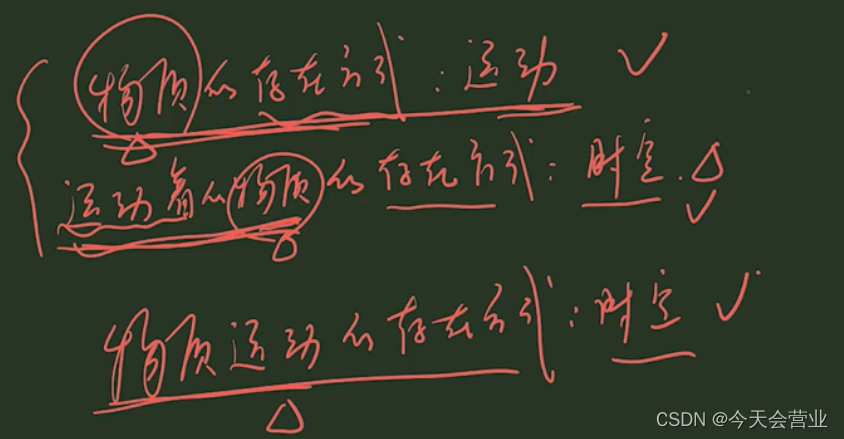 物质的存在方式：运动
运动着的物质的存在方式：时空.
物质运动的存在方式：时空
CSDN @今天会营业